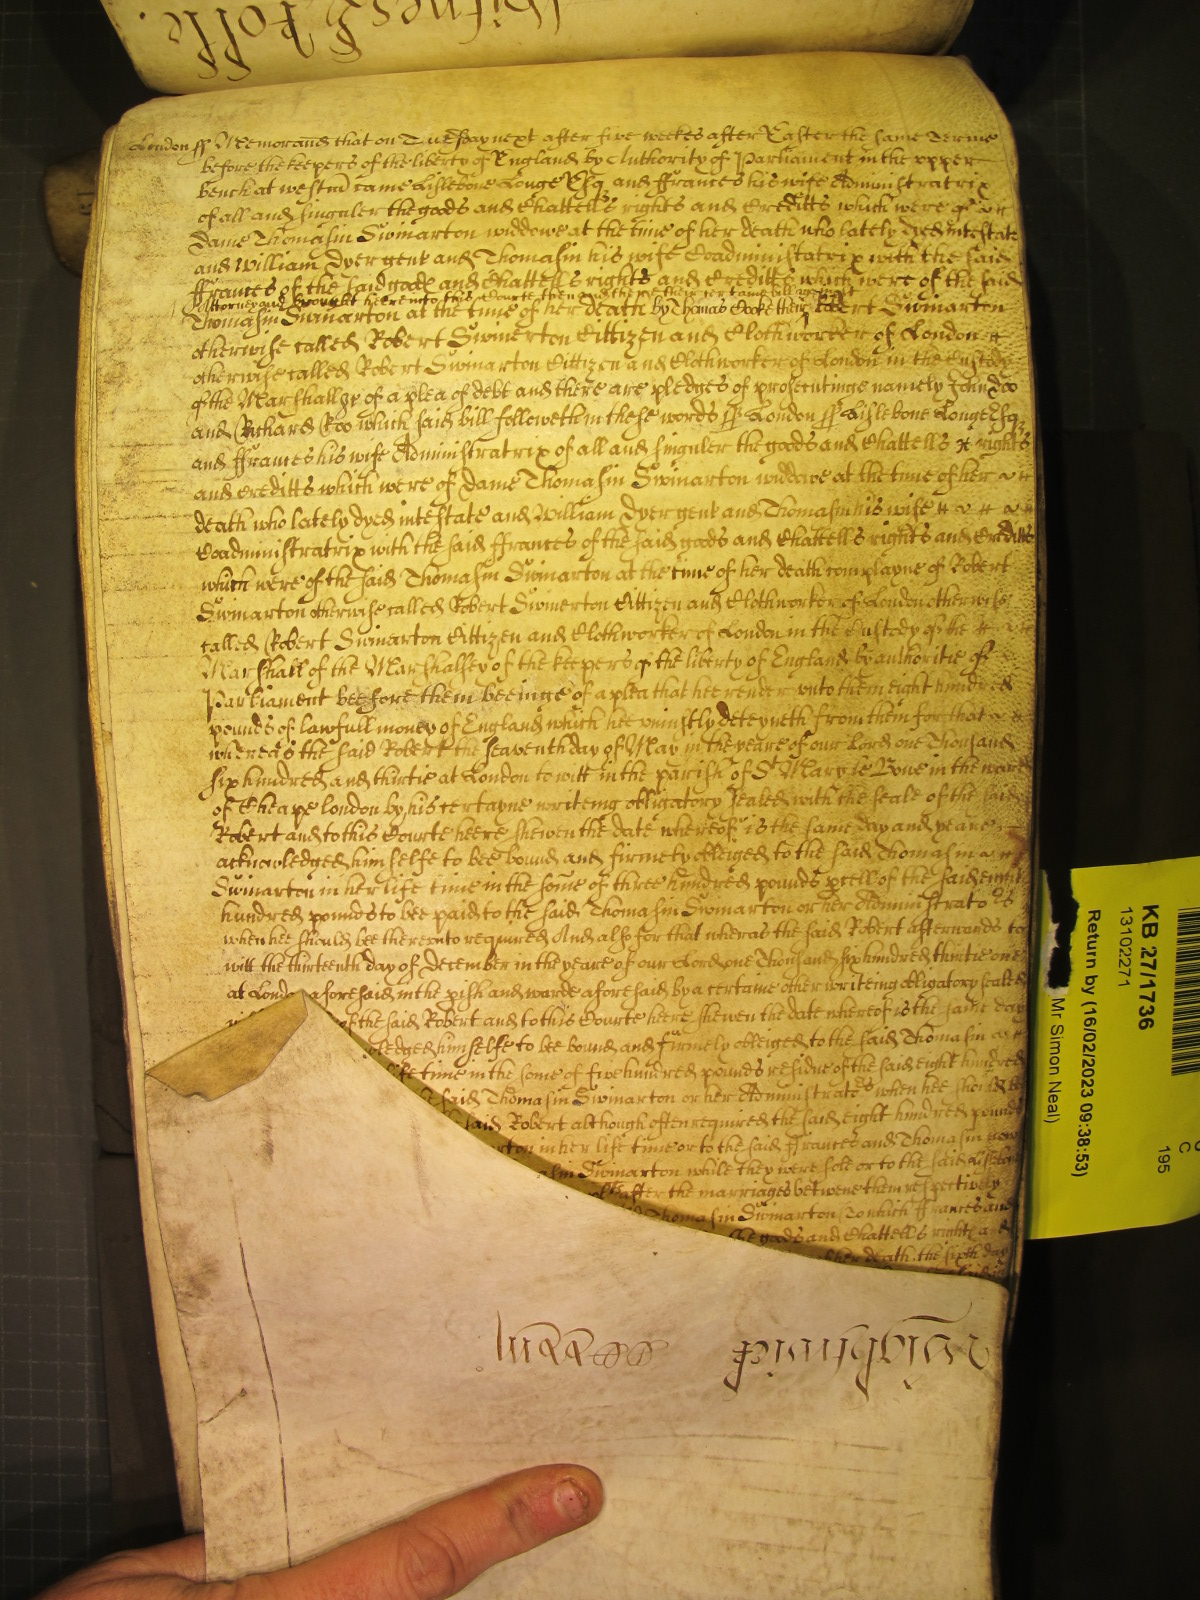 Witness p Rolle.
London ss Memorand that on Tuesday next after five weekes after Easter the same Terme
before the keepers of the liberty of England by Authority of Parliament in the vpper
bench at westm came Lislebone Longe Esq and ffrances his wife Administratrix
of all and singuler the goods and Chattells rights and Creditts which were of
Dame Thomasin Swinarton widdowe at the time of her death who lately dyed intestate
and William Dyer gent and Thomasin his wife Coadministratrix with the said
ffrances of the said goods and Chattells rights and Creditts which were of the said
Thomasin Swinarton at the time of her death by Thomas Cooke their Attorney and brought heere into this Courte then and there their certaine bill against Robert Swinarton
otherwise called Robert Swinerton Cittizen and Clothworker of London
otherwise called Robert Swinarton Cittizen and Clothworker of London in the Custody
of the Marshall &c of a plea of debt and there are pledges of prosecutinge namely John Doo
and Richard Roo which said bill followeth in these words ss London ss Lislebone Longe Esq
and ffrances his wife Administratrix of all and singuler the goods and Chattells rights
and Creditts which were of Dame Thomasin Swinarton widdowe at the time of her
death who lately dyed intestate and William Dyer gent and Thomasin his wife
Coadministratrix with the said ffrances of the said goods and Chattells rights and Creditts
which were of the said Thomasin Swinarton at the time of her death complayne of Robert
Swinarton otherwise called Robert Swinerton Cittizen and Clothworker of London otherwise
called Robert Swinarton Cittizen and Clothworker of London in the Custody of the
Marshall of the Marshallsey of the keepers of the liberty of England by authoritie of
Parliament beefore them beeinge of a plea that hee render vnto them eight hundred
pounds of lawfull money of England which hee vniustly deteyneth from them for that
whereas the said Robert the seaventh day of May in the yeare of our Lord one Thousand
six hundred and thirtie at London to witt in the parish of St Mary le Bone in the warde
of Cheape London by his certayne writeing obligatory sealed with the seale of the said
Robert and to this Courte heere shewen the date whereof is the same day and yeare
acknowledged himselfe to bee bound and firmely obleiged to the said Thomasin
Swinarton in her life time in the some of three hundred pounds pcell of the said eight
hundred pounds to bee paid to the said Thomasin Swinarton or her Administrators
when hee should bee therevnto required And also for that wheras the said Robert afterwards to
witt the thirteenth day of December in the yeare of our Lord one Thousand six hundred thirtie one
at London aforesaid in the pish and warde aforesaid by a certaine other writeing obligatory sealed
of the said Robert and to this Courte heere shewen the date whereof is the same day
himselfe to bee bound and firmely obleiged to the said Thomasin
life time in the some of five hundred pounds residue of the said eight hundred
said Thomasin Swinarton or her Administrators when hee should
said Robert although often required the said eight hundred pounds
in her life time or to the said ffrances and Thomasin now
Swinarton while they were sole or to the said
after the marriages betweene them respectively
Thomasin Swinarton To which ffrances and
the goods and Chattells rights and
her death the sixth day
Wightwick
KB 27/1736
13102271
Return by (16/02/2023 09:38:53)
Mr Simon Neal)
C
195